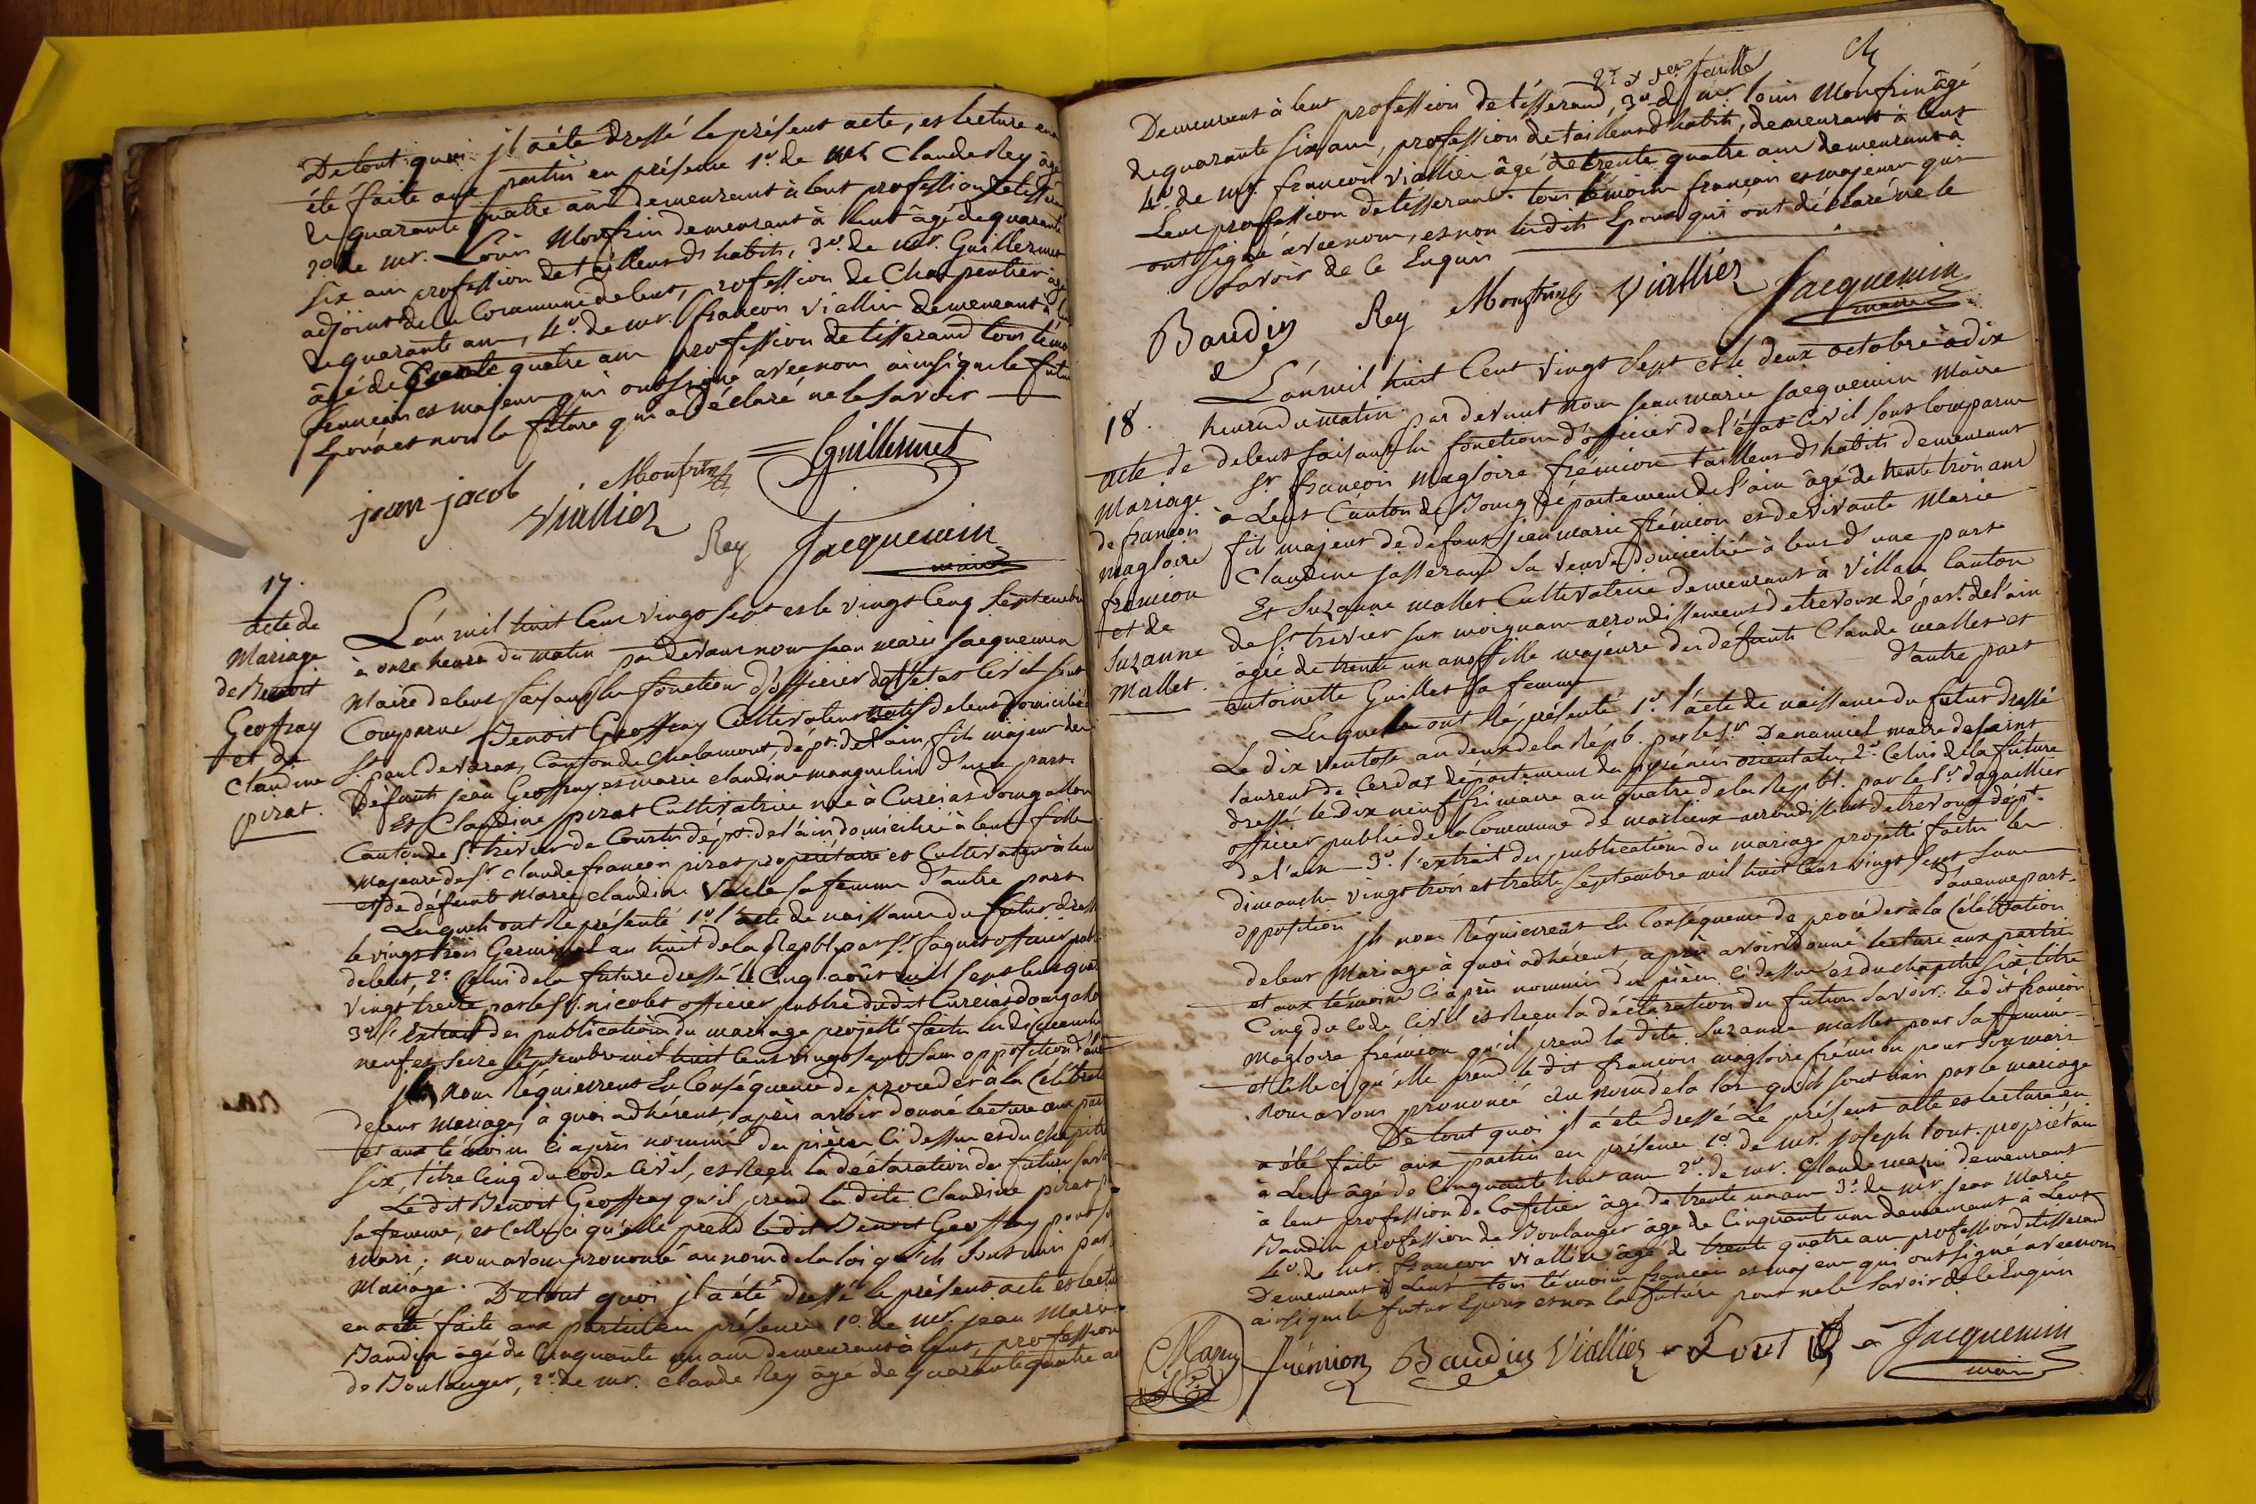 De tout quoi jl a été dressé le présent acte, es lecture en a
été faite aux parties en présence 1º. de mr Claude Rey âgé
de quarante quatre ans demeurant à lent profession de tisserand
2º de mr. Louis Monfrin demeurant à lent âgé de quarante
six ans profession de tailleur d'habits, 3º. de mr. Guillermet
adjoint de la Commune de lent, profession de Charpentier âgé
de quarante ans, 4º. de mr. françois viallier demeurant à
âgé de trente quatre ans profession de tisserand tous témoins
français es majeurs qui ont signé avec nous ainsi que le futur
Epoux et non la future qui a déclaré ne le savoir
jean jacob Monfrin Guillermet
Viallier Rey Jacquemin
maire
17.
acte de
Mariage
de Benoit
Geoffray
et de
Claudine
pirat.
L'an mil huit Cent vingt sept es le vingt Cinq Septembre
à onze heures du matin par devant nous jean marie jacquemin
Maire de lent faisant les fonctions d'officier de l'état Civil sont
Comparus Benoit Geoffray Cultivateur natif de lent domicilié
St. paul de varax, Canton de Chalamont, dépt. de l'ain, fils majeur des
Défunts jean Geoffray es marie claudine manguelin d'une part.
Et Claudine pirat Cultivatrice née à Curciat dongalon
Canton de St. trivier de Courtes dépt. de l'ain domiciliée à lent fille
majeure de Sr. claude françois pirat propriétaire et Cultivateur à lent
et de défunte Marie claudine sa femme d'autre part.
Lesquels ont Représenté 1º. l'acte de naissance du futur dressé
le vingt trois Germinal an huit de la Repbl. par Sr. jaquet officier public
de lent, 2º. Celui de la future dressé le Cinq août mil sept Cent quatre
vingt treize par le Sr. nicolet officier public du dit Curciat dongalon
3º. l'extrait des publications du mariage projetté faites les dimanches
neuf et seize septembre mil huit Cent vingt sept sans opposition
Ils nous Réquierent En Conséquence de procéder à la Célébration
de leur Mariage à quoi adhérent, après avoir donné lecture aux parties
et aux témoins Ci après nommés des pièces Ci dessus es du chapitre
Six, titre Cinq du Code Civil, es Reçu la déclaration des futurs savoir
Le dit Benoit Geoffray qu'il prend la dite Claudine pirat pour
sa femme, et Celle Ci qu'elle prend le dit Benoit Geoffray pour
mari; nous avons prononcé au nom de la loi qu'ils sont unis par
Mariage. De tout quoi jl a été dressé le présent acte es lecture
en a été faite aux parties en présence 1º. de mr. jean Marie
Baudin âgé de Cinquante un ans demeurant à lent, profession
de Boulanger, 2º. de mr. claude Rey âgé de quarante quatre ans
2e. et feuillet
Demeurant à lent profession de tisserand, 3º. de mr. louis Monfrin âgé
de quarante six ans, profession de tailleur d'habits, demeurant à lent
4º. de mr. françois viallier âgé de trente quatre ans demeurant à
Lent profession de tisserand. tous témoins français es majeurs qui
ont signé avec nous, es non lesdits Epoux qui ont déclaré ne le
savoir de Ce Enquis
Baudin Rey Monfrin Viallier Jacquemin
maire
18.
acte de
Mariage
de françois
magloire
frémion
et de
Suzanne
Mallet.
L'an mil huit Cent vingt Sept es le deux octobre à dix
heures du matin par devant nous jean marie jacquemin Maire
de lent faisant les fonctions d'officier de l'état Civil sont Comparus
Sr. françois magloire frémion tailleur d'habits demeurant
à Lent Canton de Bourg département de l'ain âgé de trente trois ans
fils majeur de défunt jean marie frémion es de vivante Marie
Claudine jasserand sa veuve domiciliée à lent d'une part
Et Suzanne mallet Cultivatrice demeurant à Villars Canton
de St. trivier sur moignans arrondissement de trevoux dépt. de l'ain
âgée de trente un ans fille majeure des défunts Claude mallet et
antoinette Guillet sa femme d'autre part
Lesquels ont Représenté 1º. l'acte de naissance du futur dressé
Le dix ventose an deux de la Répb. par le Sr. Denamiel maire de saint
laurent de Cerdas département des pyrénées orientales, 2º. Celui de la future
dressé le dix neuf frimaire an quatre de la Repbl. par le Sr. dagaillier
officier public de la Commune de marlieux arrondissement de trevoux dépt.
de l'ain 3º. l'extrait des publications du mariage projetté faites les
dimanches vingt trois et trente septembre mil huit Cent vingt sept sans
opposition d'aucune part.
Ils nous Réquierent En Conséquence de procéder à la Célébration
de leur Mariage à quoi adhérent, après avoir donné lecture aux parties
et aux témoins Ci après nommés des pièces Ci dessus es du chapitre six titre
Cinq du Code Civil es Reçu la déclaration des futurs savoir: le dit françois
Magloire frémion qu'il prend la dite Suzanne mallet pour sa femme
et Celle Ci qu'elle prend le dit françois magloire frémion pour son mari
nous avons prononcé au nom de la loi qu'ils sont unis par le mariage
De tout quoi jl a été dressé Le présent acte es lecture en
a été faite aux parties en présence 1º. de mr. joseph tout. propriétaire
à Lent âgé de Cinquante huit ans 2º. de mr. Claude marie demeurant
à lent profession de Cafetier âgé de trente un ans 3º. de mr jean Marie
Baudin profession de Boulanger âgé de Cinquante un ans demeurant à Lent
4º. de mr. françois viallier âgé de trente quatre ans profession de tisserand
Demeurant à Lent tous témoins français es majeurs qui ont signé avec nous
ainsi que le futur Epoux es non la future pour ne le savoir de Ce Enquis
frémion Baudin Viallier Tout Jacquemin
maire